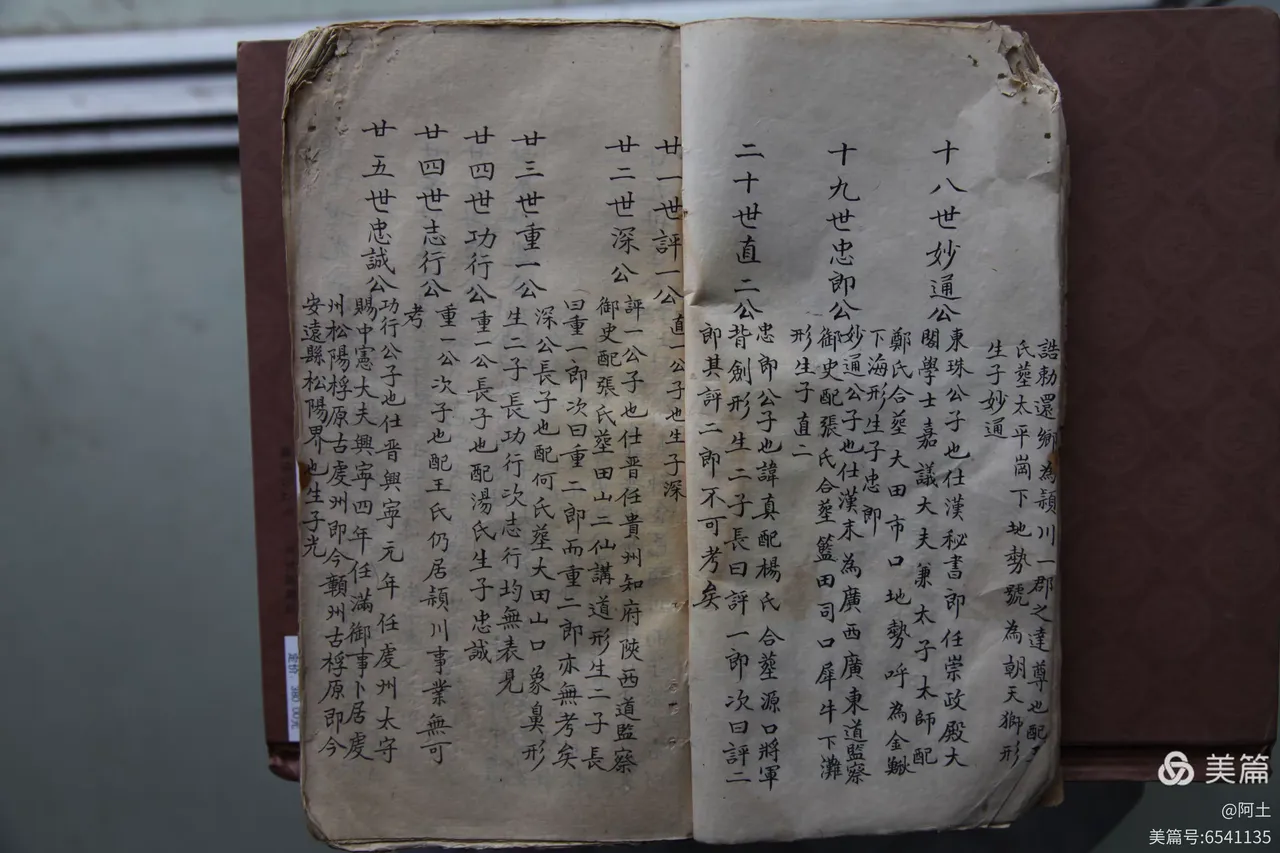 誥勅還鄉為頴川一郡之達尊也配
氏塟太平崗下地勢號為朝天獅形
生子妙通
十八世妙通公
東珠公子也仕漢秘書郎任崇政殿大
閣學士嘉議大夫兼太子太師配
鄭氏合塟大田市口地勢呼為金鰍
下海形生子忠郎
十九世忠郎公
妙通公子也仕漢末為廣西廣東道監察
御史配張氏合塟籃田司口犀牛下灘
形生子直二
二十世直二公
忠郎公子也諱真配楊氏合塟源口將軍
背劍形生二子長曰評一郎次曰評二
郎其評二郎不可考矣
廿一世評一公
直一公子也生子深
廿二世深公
評一公子也仕晋任貴州知府陝西道監察
御史配張氏塟田山二仙講道形生二子長
曰重一郎次曰重二郎而重二郎亦無考矣
廿三世重一公
深公長子也配何氏塟大田山口象鼻形
生二子長功行次志行均無表見
廿四世功行公
重一公長子也配湯氏生子忠誠
廿四世志行公
重一公次子也配王氏仍居頴川事業無可
考
廿五世忠誠公
功行公子也仕晋興寧元年任虔州太守
賜中憲大夫興寧四年任滿御事卜居虔
州松陽桴原古虔州即今贛州古桴原即今
安遠縣松陽界也生子光
美篇
@阿土
美篇号:6541135